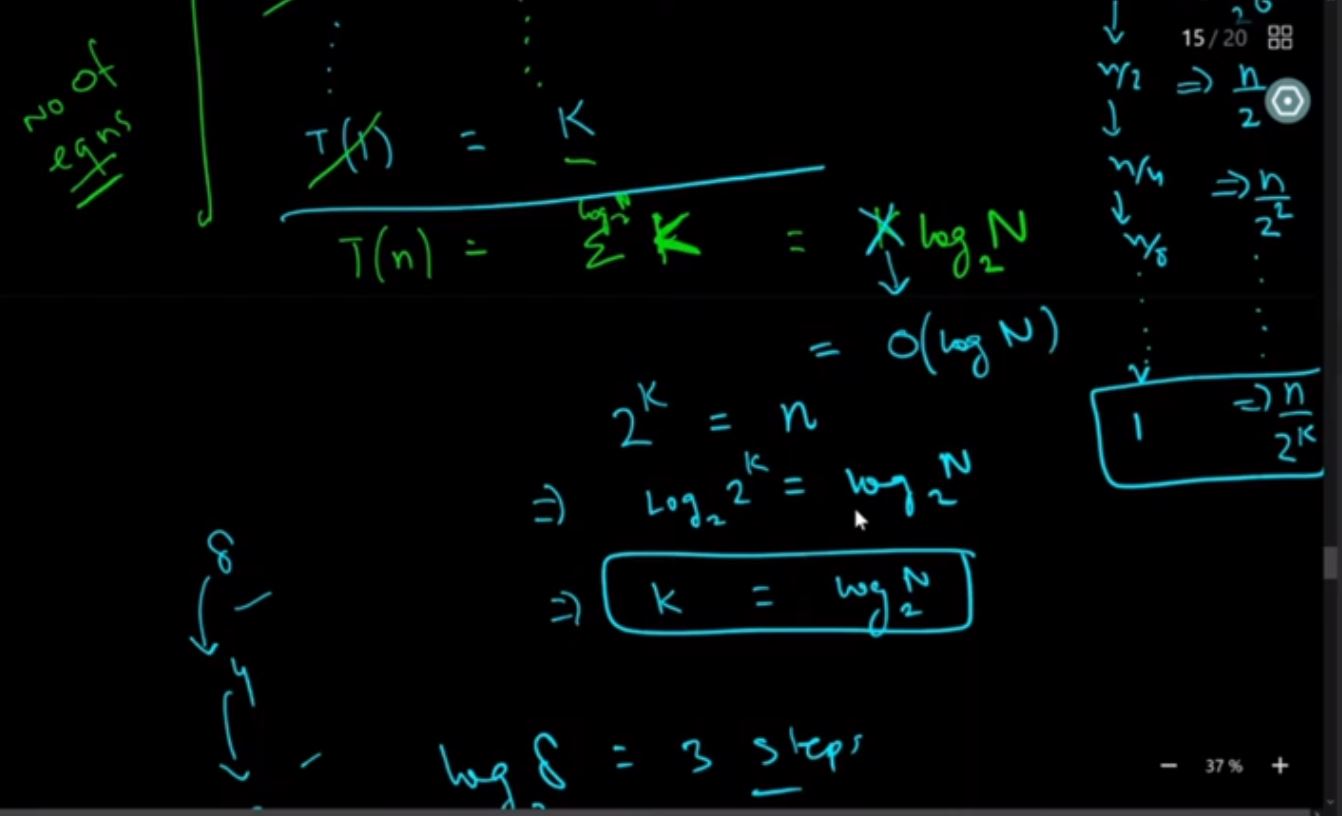 No of
eqns
T(1) = K
T(n) = Σ log₂N K = K log₂N
= O(log N)
2^K = n
=> Log₂ 2^K = log₂N
=> K = log₂N
8
4
log₂8 = 3 steps
15 / 20
n/2 => n/2
n/4 => n/2²
n/8
1 => n/2^K
37 %